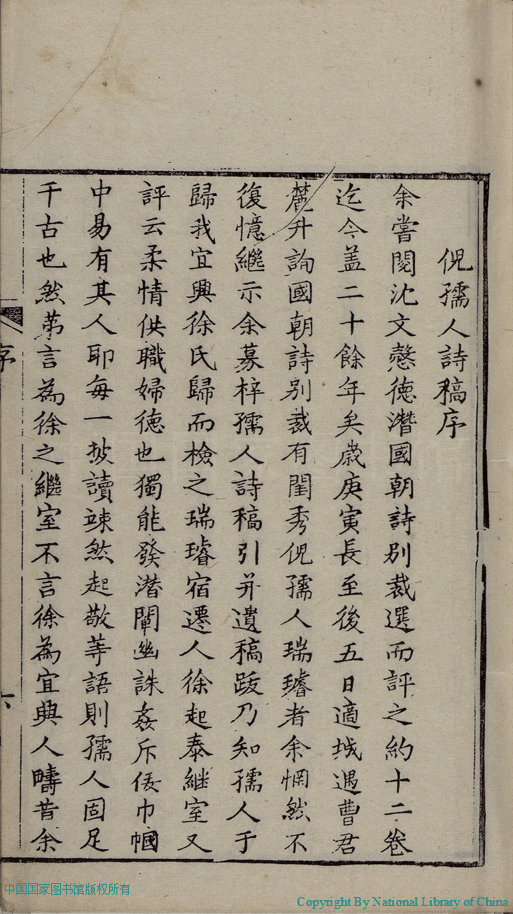 倪孺人詩稿序
余嘗閱沈文慤德潛國朝詩別裁選而評之約十二卷
迄今盖二十餘年矣歲庚寅長至後五日適城遇曹君
麓升詢國朝詩別裁有閨秀倪孺人瑞璿者余惘然不
復憶繼示余募梓孺人詩稿引并遺稿跋乃知孺人于
歸我宜興徐氏歸而檢之瑞璿宿遷人徐起泰継室又
評云柔情供職婦德也獨能發潛闡幽誅姦斥佞巾幗
中易有其人耶每一披讀竦然起敬等語則孺人固足
千古也然苐言為徐之繼室不言徐為宜興人疇昔余
序
六
中国国家图书馆版权所有
Copyright By National Library of China